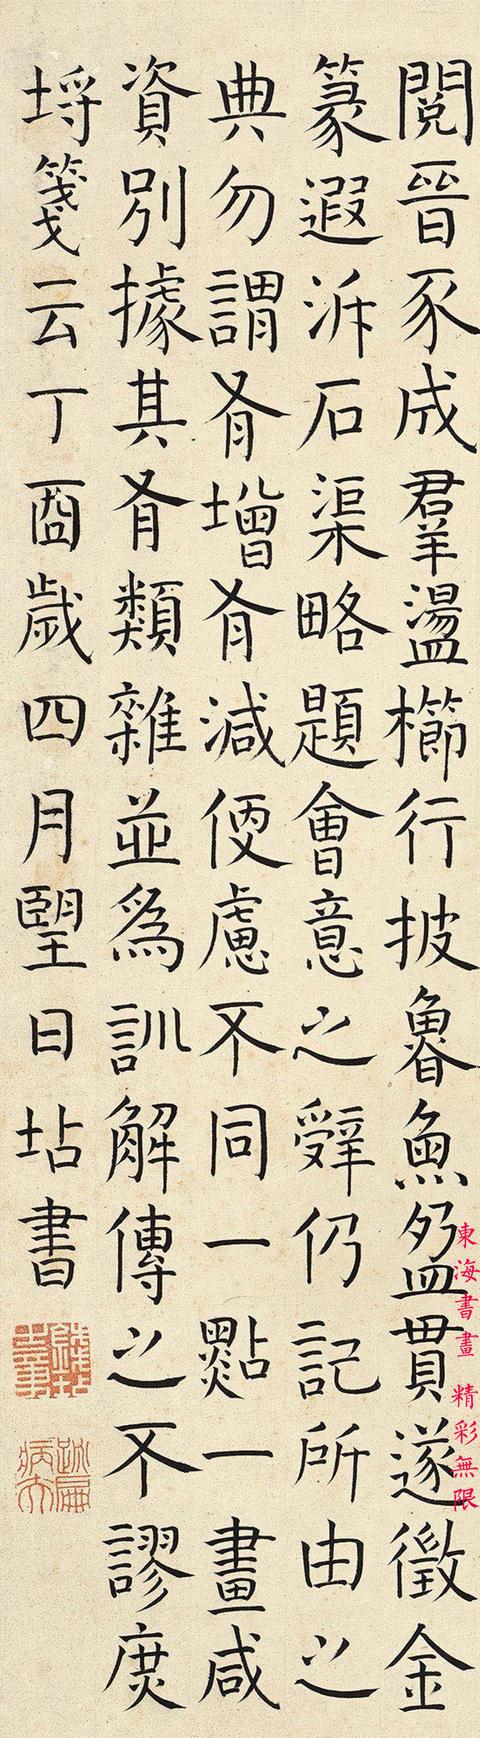 閱晉豕成羣盪櫛行披魯魚盈貫遂徵金
篆遐泝石渠略題會意之辤仍記所由之
典勿謂有增有減便慮不同一點一畫咸
資別據其有類雜並爲訓解傳之不謬庶
埒箋云丁酉歲四月望日坫書
東海書畫 精彩無限